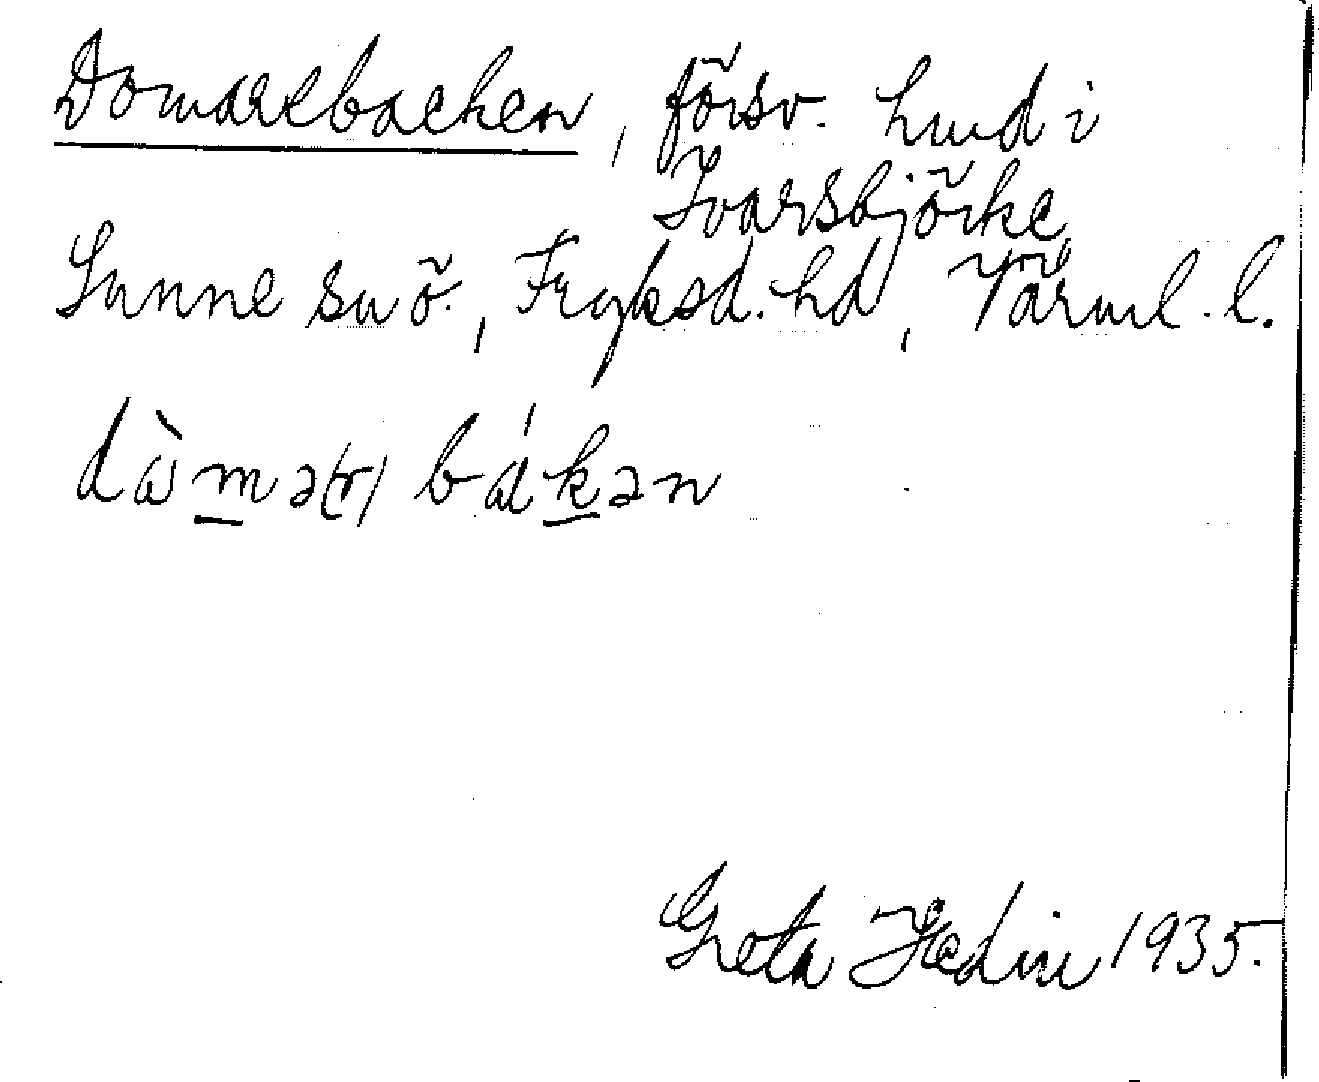 Domarebacken, försv. hmd i
Ivarsbjörke
Sunne sn ö., Fryksd. hd, Värml. l.
dὼmə(r) bákən
Greta Hedin 1935.